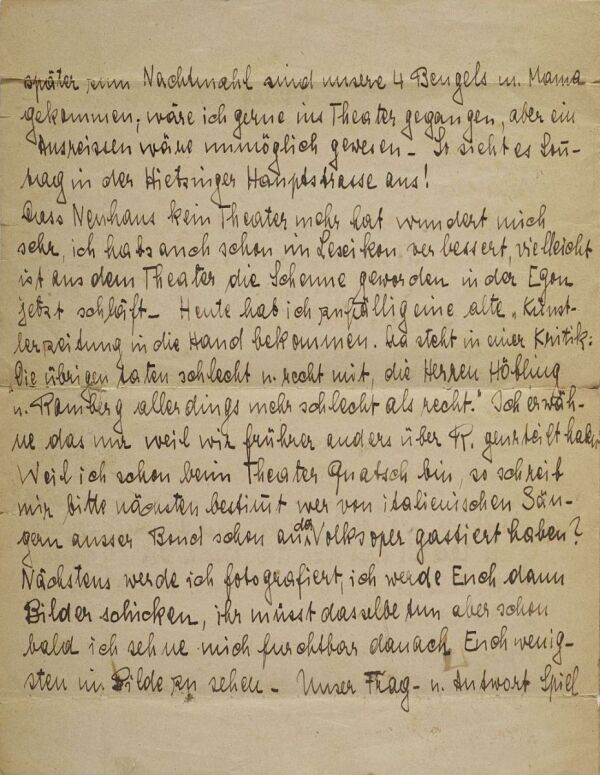 später zum Nachtmahl sind unsere 4 Bengels m. Mama
gekommen; wäre ich gerne ins Theater gegangen, aber ein
Ausreissen wäre unmöglich gewesen – So sieht es Sonn-
tag in der Hietzinger Hauptstrasse aus!
Dass Neuhaus kein Theater mehr hat wundert mich
sehr, ich habs auch schon im Lexikon verbessert, vielleicht
ist aus dem Theater die Scheune geworden in der Egon
jetzt schläft – Heute hab ich zufällig eine alte „Künst-
lerzeitung in die Hand bekommen. Da steht in einer Kritik:
„Die übrigen taten schlecht u. recht mit, die Herren Höbling
u. Ramberg allerdings mehr schlecht als recht." Ich erwäh-
ne das nur weil wir frührer anders über R. geurteilt haben.
Weil ich schon beim Theater Quatsch bin, so schreib
mir bitte nächsten bestimmt wer von italienischen Sän-
gern ausser Bond schon an der Volksoper gastiert haben?
Nächstens werde ich fotografiert, ich werde Euch dann
Bilder schicken, ihr müsst dasselbe tun aber schon
bald ich sehne mich furchtbar danach Euch wenig-
sten im Bilde zu sehen – Unser Frag- u. Antwort Spiel